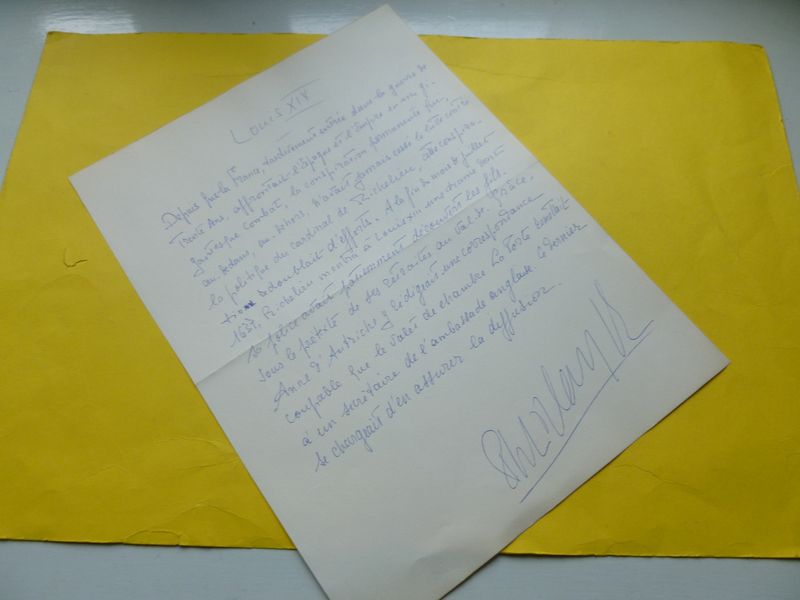 Louis XIV
Depuis que la France, tardivement entrée dans la guerre de
Trente Ans, affrontait l'Espagne et l'Empire en un gi-
gantesque combat, la conspiration permanente qui,
au-dedans, au-dehors, n'avait jamais cessé de
la politique du cardinal de Richelieu, cette conspira-
tion redoublait d'efforts. A la fin du mois de juillet
1637, Richelieu montra à Louis XIII une trame dont
sa police avait patiemment découvert les fils.
Sous le prétexte de ses retraites au Val-de-Grâce,
Anne d'Autriche y rédigeait une correspondance
coupable que le valet de chambre La Porte remettait
à un secrétaire de l'ambassade anglaise. Ce dernier
se chargeait d'en assurer la diffusion.